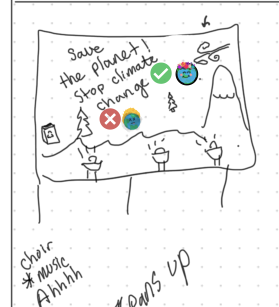 Save
the Planet!
Stop climate
change
choir
* music
Ahhhh
up